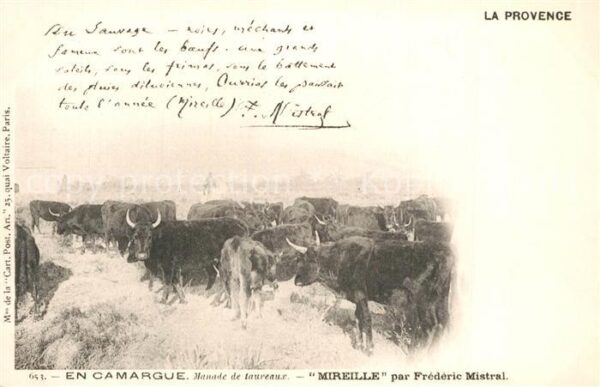 LA PROVENCE
Au Sauvage — noirs, méchants et
fameux sont les bœufs. aux grands
soleils, sous les frimas, sous le battement
des pluies diluviennes, Ourrias les paissait
toute l'année (Mireille) F. Mistral
Mon de la "Cart. Post. Art." 25, quai Voltaire, Paris.
653. — EN CAMARGUE. Manade de taureaux. — "MIREILLE" par Frédéric Mistral.